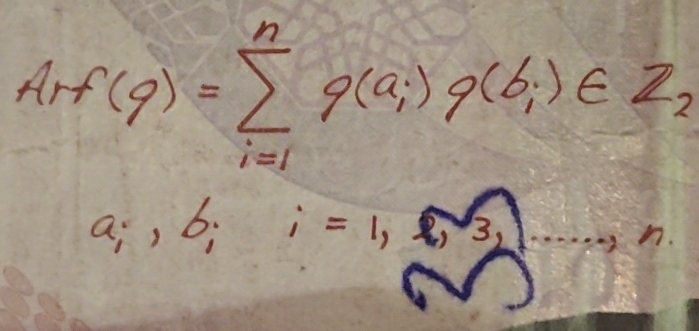 Arf(q) = ∑ⁿᵢ₌₁ q(aᵢ) q(bᵢ) ∈ ℤ₂
aᵢ, bᵢ i = 1, 2, 3, ......, n.